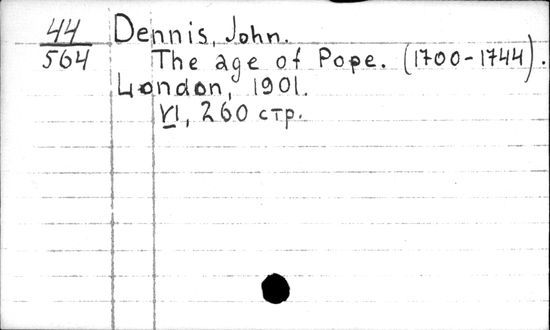 44 Dennis, John.
564 The age of Pope. (1700-1744).
London, 1901.
VI, 260 стр.